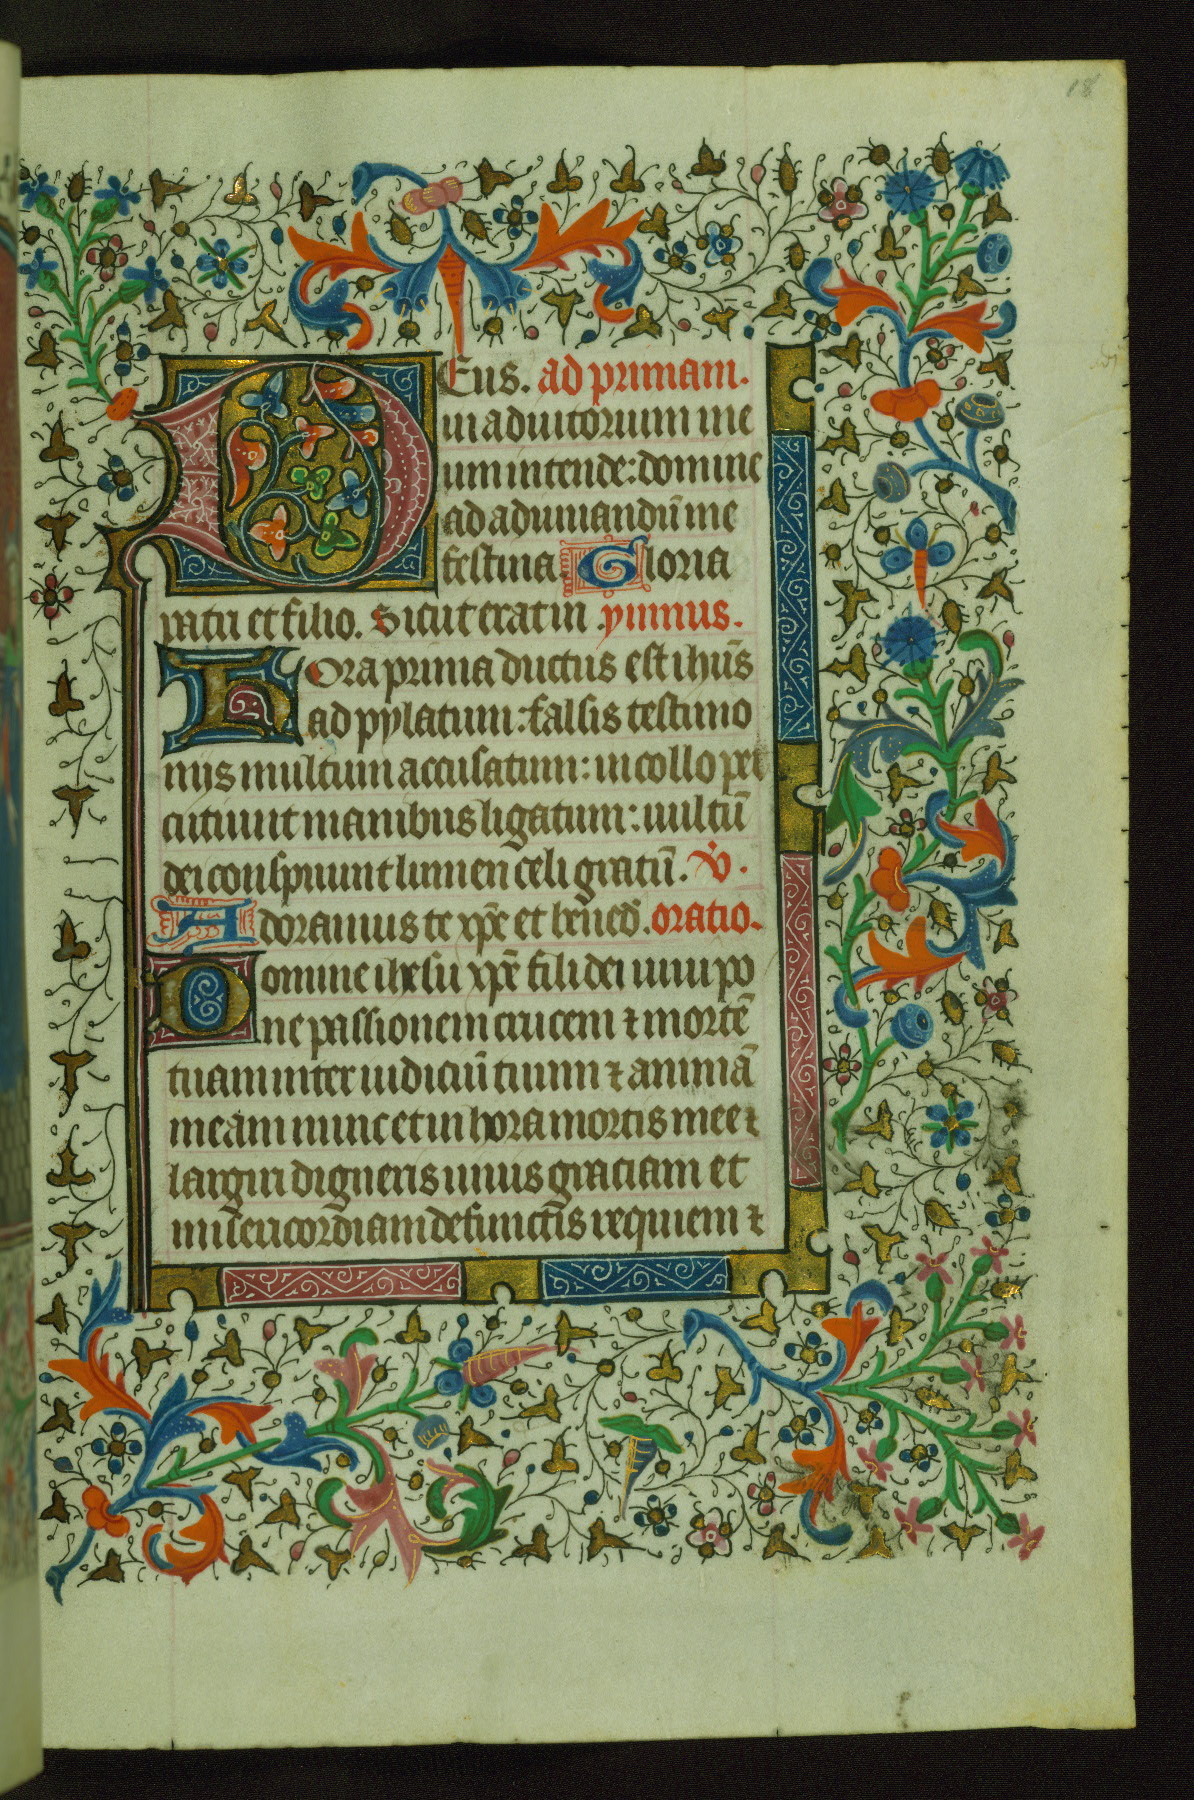 18
DEus. ad primam.
in adiutorium me
um intende: domine
ad adiuuandū me
festina. Gloria
patri et filio. Sicut erat in. ymnus.
HOra prima ductus est ihūs
ad pylatum: falsis testimo
nijs multum accusatum: in collo per
cutiunt manibus ligatum: uultū
dei conspuunt lumen celi gratū. V̇.
Adoramus te xp̄e et bened̄. oratio.
Domine ihesu xp̄e fili dei uiui po
ne passionem crucem ⁊ mortē
tuam inter iudiciū tuum ⁊ animā
meam nunc et in hora mortis mee ⁊
largiri digneris uiuis gratiam et
misericordiam defunctis requiem ⁊